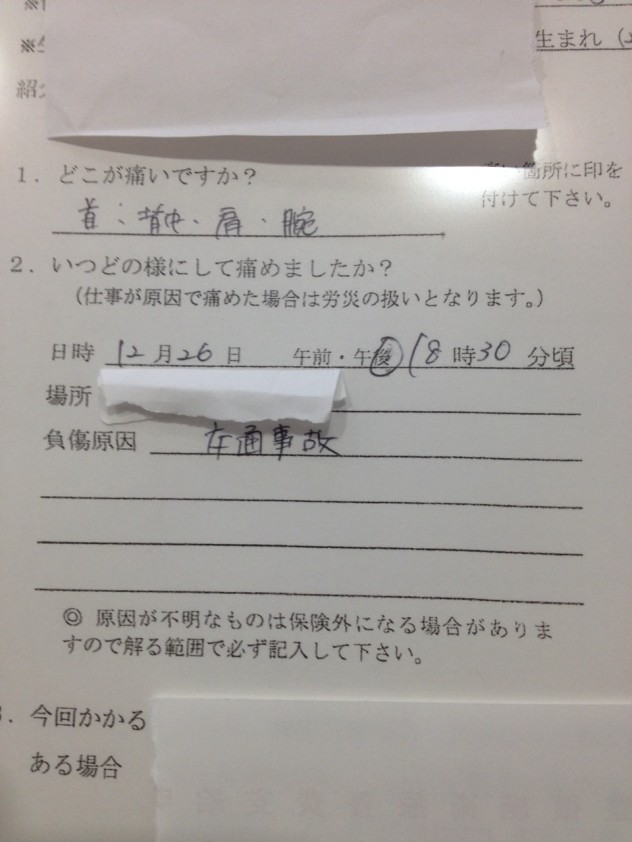 生まれ
1. どこが痛いですか?
箇所に印を
付けて下さい。
首、背中、肩、腕
2. いつどの様にして痛めましたか?
(仕事が原因で痛めた場合は労災の扱いとなります。)
日時 12月26日 午前・午後 18時30分頃
場所
負傷原因 交通事故
◎ 原因が不明なものは保険外になる場合がありま
すので解る範囲で必ず記入して下さい。
3. 今回かかる
ある場合